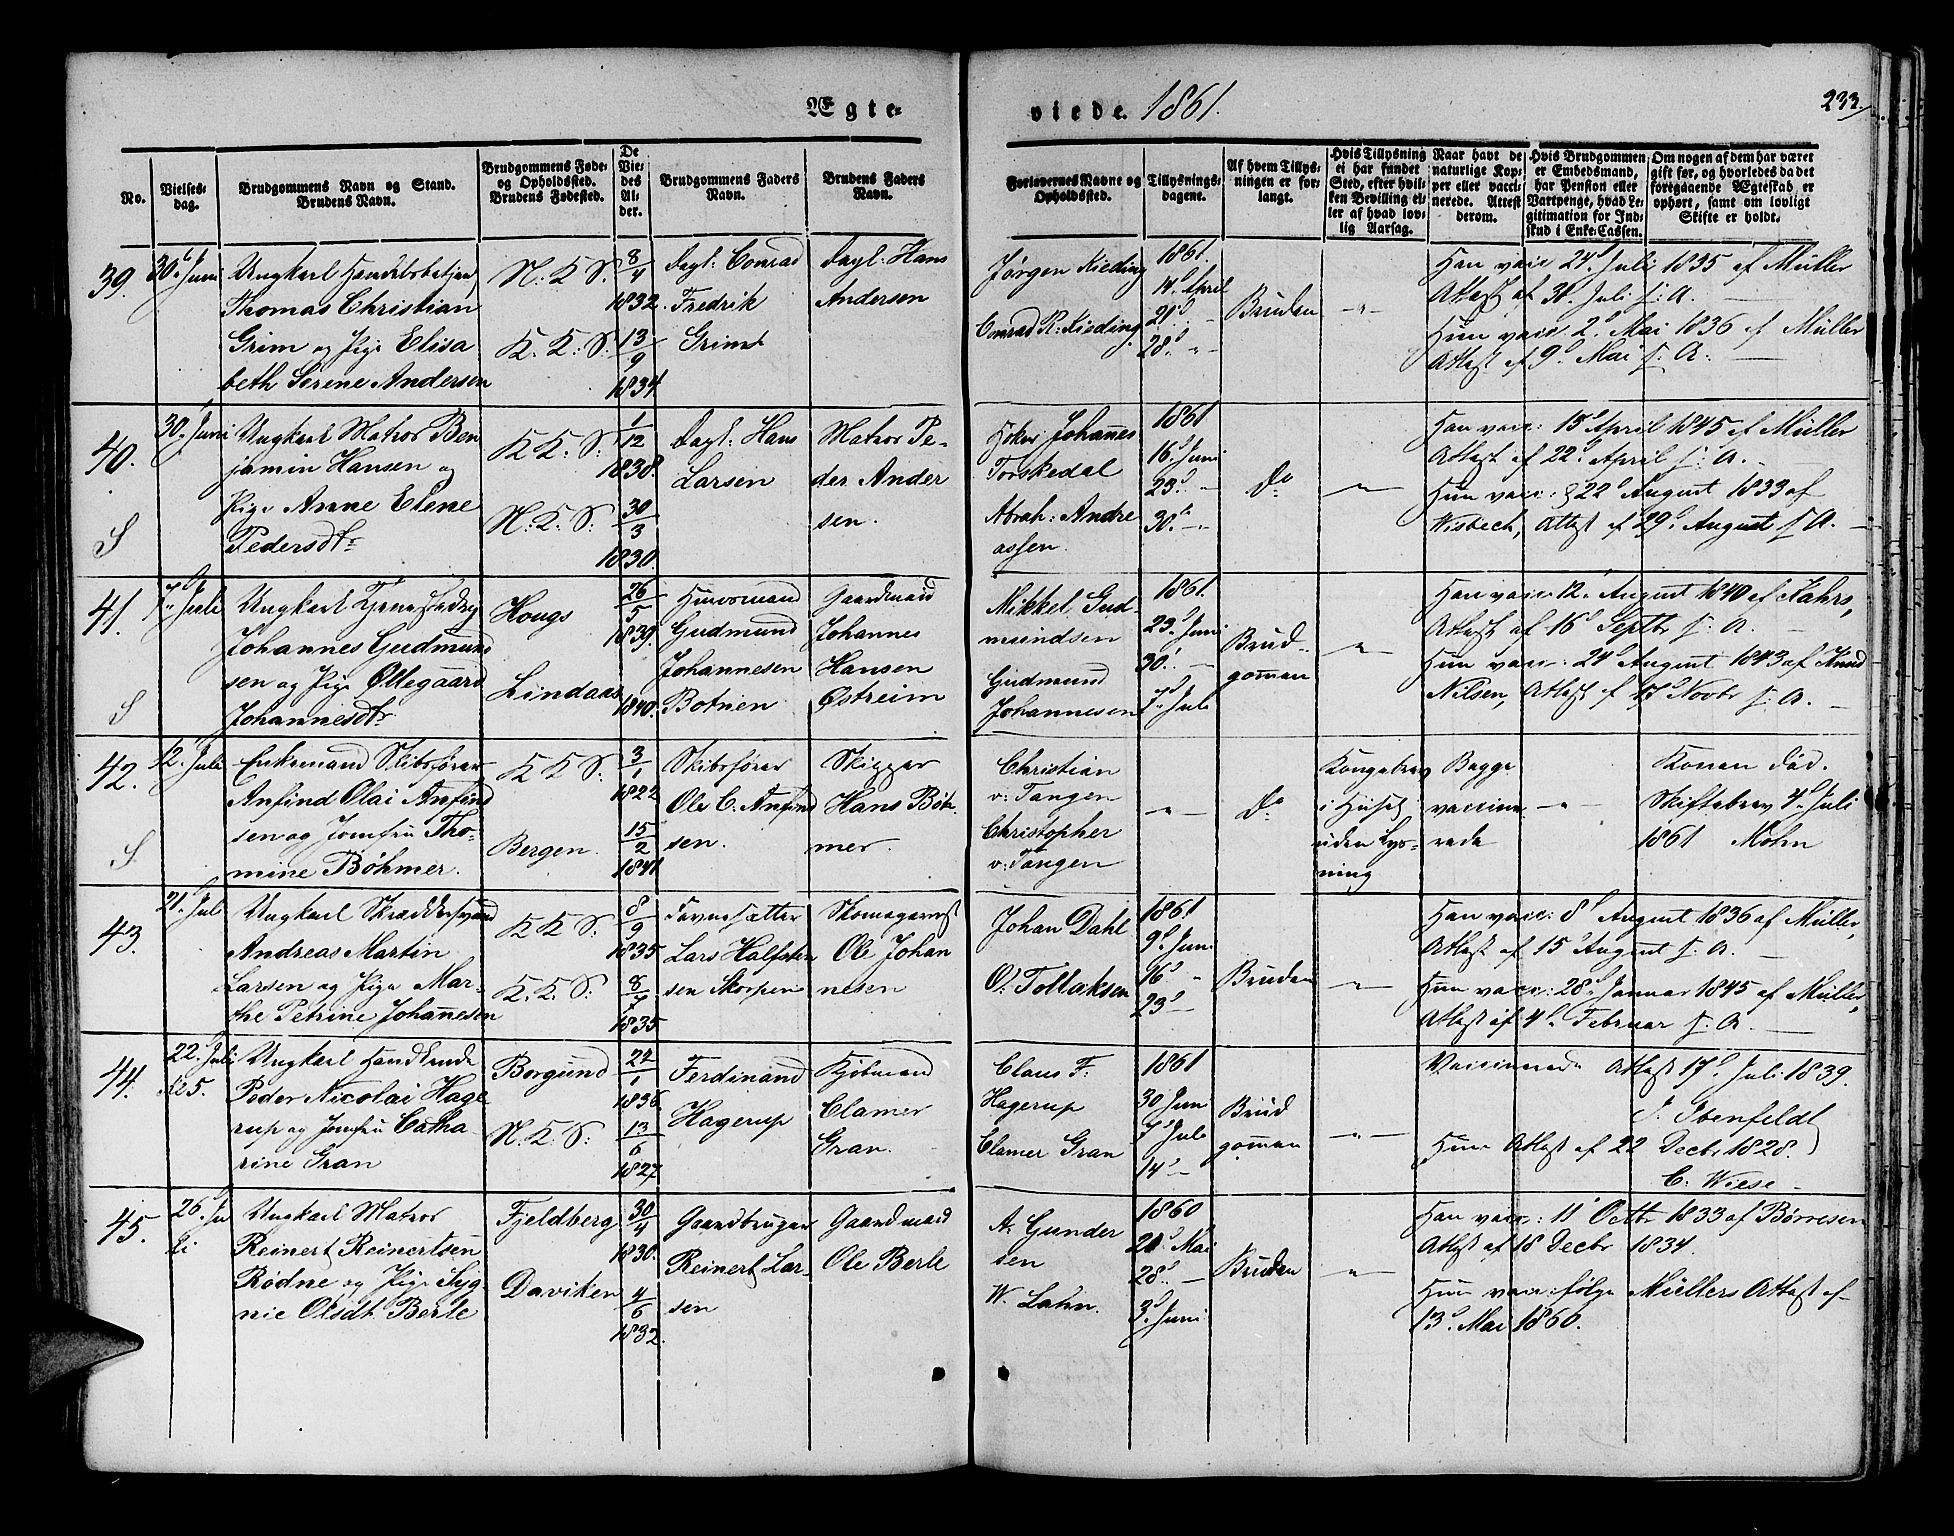 Ægte-
viede. 1861.
233.
No.
Vielses-
dag.
Brudgommens Navn og Stand.
Brudens Navn.
Brudgommens Føde-
og Opholdssted.
Brudens Fødested.
De
Vie-
des
Al-
der.
Brudgommens Faders
Navn.
Brudens Faders
Navn.
Forlovernes Navne og
Opholdssted.
Tillysnings-
dagene.
Af hvem Tillys-
ningen er for-
langt.
Hvis Tillysning
ei har fundet
Sted, efter hvil-
ken Bevilling el-
ler af hvad lov-
lig Aarsag.
Naar havt de
naturlige Kop-
per eller vacci-
nerede. Attest
derom.
Hvis Brudgommen
er Embedsmand,
har Pension eller
Vartpenge, hvad Le-
gitimation for Ind-
skud i Enke-Cassen.
Om nogen af dem har været
gift før, og hvorledes da det
foregaaende Ægteskab er
ophørt, samt om lovligt
Skifte er holdt.
39.
30. Juni
Ungkarl Handelsbetjent
Thomas Christian
Grim og Pige Elisa
beth Serene Andersen
N. K. S.
K. K. S.
8/4
1832.
13/9
1834
Dagl: Conrad
Fredrik
Grimt
Dagl: Hans
Andersen
Jørgen Kieding
Conrad R. Kieding
1861.
14. April
21. "
28. "
Bruden
"
Han vacc 24. Juli 1835 af Müller
Attest af 31. Juli s. A.
Hun vacc. 2. Mai 1836 af Müller
Attest af 9. Mai s. A.
40.
S
30. Juni
Ungkarl Matros Ben
jamin Hansen og
Pige Anne Elene
Pedersdtr
K. K. S.
N. K. S.
1/12
1838.
30/3
1830.
Dagl: Hans
Larsen
Matros Pe-
der Ander
sen.
Johannes
Torskedal
Abrah: Andre
assen.
1861
16. Juni
23. "
30. "
Do
"
Han vacc: 15 April 1845 af Müller
Attest af 22. April s. A.
Hun vacc: 22 August 1833 af
Wisbech, Attest af 29. August s. A.
41.
S
7. Juli
Ungkarl
Johannes Gudmund
sen og Pige Øllegaard
Johannesdtr
Hougs
Lindaas
26/5
1839.
1840.
Huusmand
Gudmund
Johannesen
Botnen
Gaardmand
Johannes
Hansen
Østreim
Mikkel Gud-
mundsen
Gudmund
Johannesen
1861.
23. Juni
30. "
7. Juli
Brud-
gomman
"
Han vacc 12. August 1840 af Kahrs,
Attest af 16 Septbr s. A.
Hun vacc: 24 August 1843 af Knud
Nilsen, Attest af 17 Novbr s. A.
42.
S.
12. Juli
Enkemand Skibsfører
Anfind Olai Anfind
sen og Jomfru Tho-
mine Bøhmer.
K. K. S.
Bergen.
3/1
1822
15/2
1841
Skibsfører
Ole C. Anfind
sen.
Skipper
Hans Bøh
mer.
Christian
v: Tangen
Christopher
v: Tangen
"
Do
Kongebrev
i Huset
uden Lys-
ning
Begge
vaccine
rede
"
Konen død.
Skiftebrev 4. Juli
1861 Mohn
43.
21. Juli
Ungkarl Skræddersvend
Andreas Martin
Larsen og Pige Mar-
the Petrine Johannesen
K. K. S.
K. K. S.
8/9
1835
8/7
1835
Tavnesætter
Lars Halfsten
sen Skorpen
Skomagermst
Ole Johan
nesen
Johan Dahl
O. Tollaksen
1861
9. Juni
16. "
23. "
Bruden
"
Han vacc: 8. August 1836 af Müller,
Attest af 15 August s. A.
Hun vacc: 28. Januar 1845 af Müller,
Attest af 4. Februar s. A.
44.
22. Juli
No 5.
Ungkarl Handlende
Peder Nicolai Hage
rup og Jomfru Catha
rine Gran
Borgund
N. K. S.
24/1
1836
13/6
1827
Ferdinand
Hagerup
Kjøbmand
Clamer
Gran.
Claus F.
Hagerup
Clamer Gran
1861
30 Juni
7. Juli
14 "
Brud
gomman
"
Vaccinerede Attest 17. Juli 1839.
J. Ibenfeldt
Hun Attest af 22 Decbr 1828.
C. Wiese
45.
26. Ju
li
Ungkarl Matros
Reinert Reinertsen
Rødne og Pige Syg
nie Olsdtr Berle
Fjeldberg
Daviken
30/4
1830.
4/6
1832.
Gaardbruger
Reinert Lar-
sen
Gaardmand
Ole Berle
A. Gunder
sen
W. Lahn.
1860
21. Mai
28. "
3. Juni
Bruden
"
Han vacc: 11 Octbr 1833 af Børresen
Attest af 18 Decbr 1834.
Hun vacc: ifølge Müllers Attest af
13. Mai 1860.